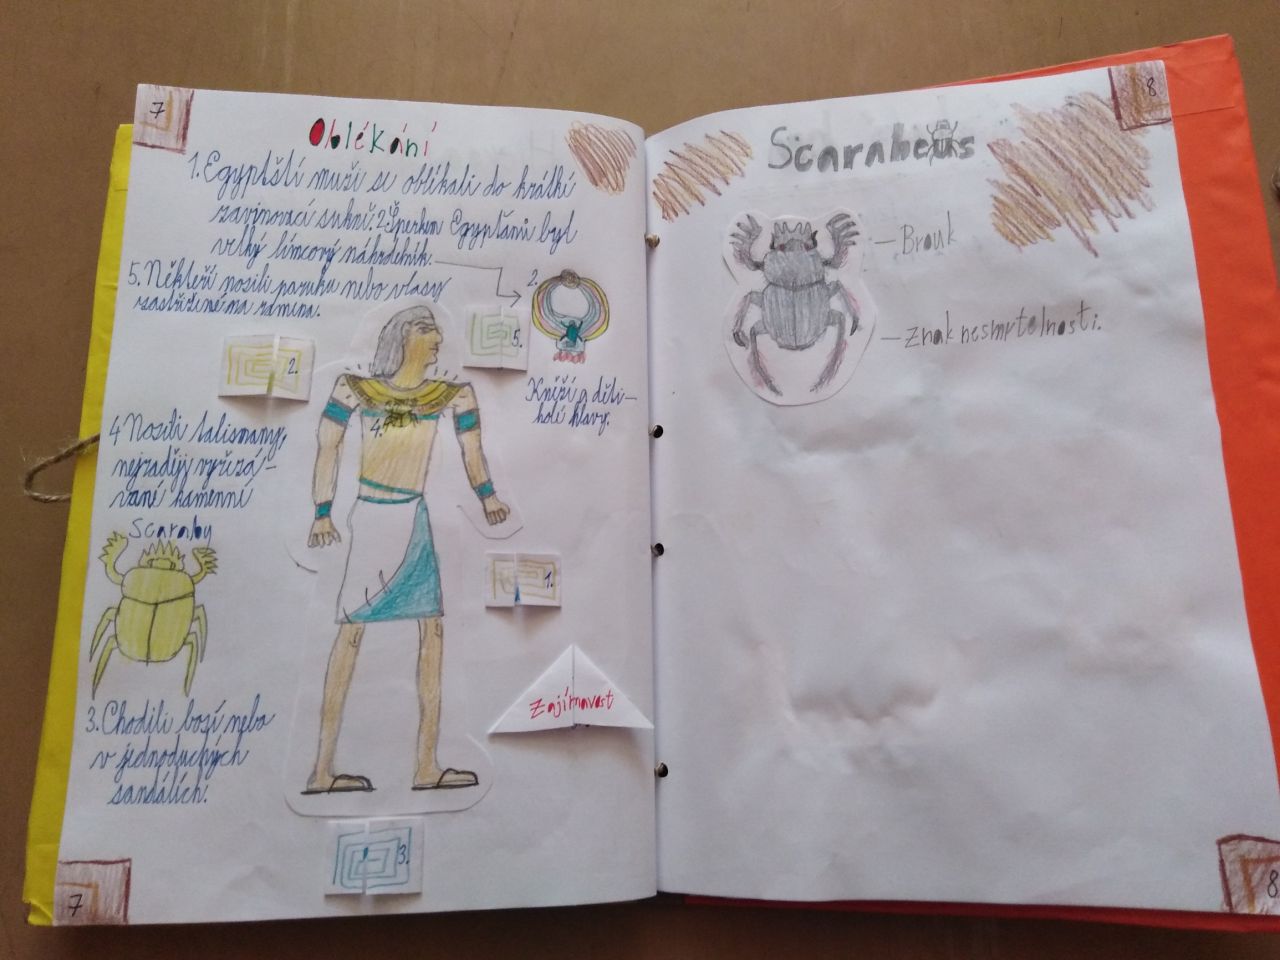 7
Oblékání
1. Egyptští muži se oblékali do krátké
zavinovací sukně. 2. Šperkem Egypťanů byl
velký límcový náhrdelník.
5. Někteří nosili paruku nebo vlasy
zastřižené na ramena.
2.
5.
2.
Kněží a děti-
holé hlavy.
4.
4 Nosili talismany,
nejraději vyřezá-
vané kamenní
scaraby
1.
Zajímavost
3. Chodili bosí nebo
v jednoduchých
sandálích.
3.
7
8
Scarabeus
- Brouk
- znak nesmrtelnosti.
8